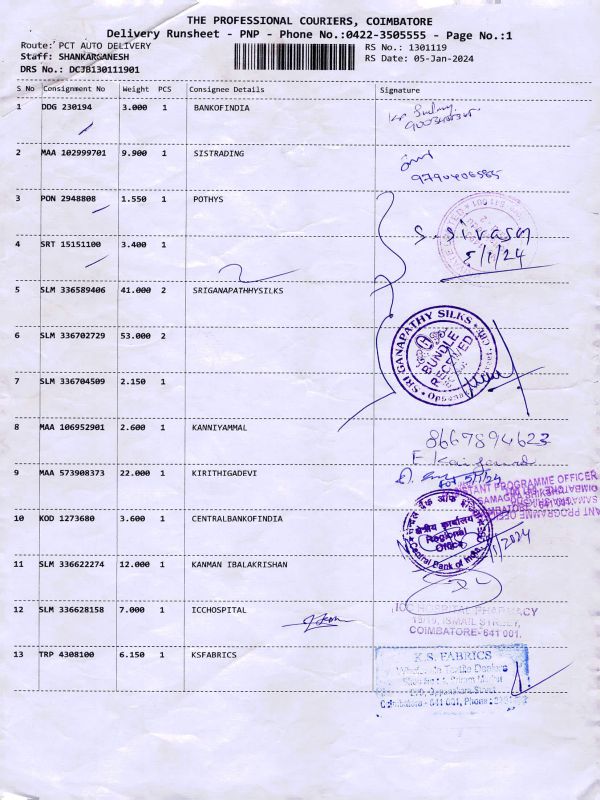 THE PROFESSIONAL COURIERS, COIMBATORE
Delivery Runsheet - PNP - Phone No.:0422-3505555 - Page No.:1
Route: PCT AUTO DELIVERY RS No.: 1301119
Staff: SHANKARGANESH RS Date: 05-Jan-2024
DRS No.: DCJB130111901
S No Consignment No Weight PCS Consignee Details Signature
1 DDG 230194 3.000 1 BANKOFINDIA
2 MAA 102999701 9.900 1 SISTRADING
3 PON 2948808 1.550 1 POTHYS
S. Sivasn
4 SRT 15151100 3.400 1
5/1/24
5 SLM 336589406 41.000 2 SRIGANAPATHHYSILKS
SRI GANAPATHY SILKS
6 SLM 336702729 53.000 2
BUNDLE
RECEIVED
7 SLM 336704509 2.150 1
8 MAA 106952901 2.600 1 KANNIYAMMAL
8667894623
9 MAA 573908373 22.000 1 KIRITHIGADEVI
5/1/24
ASSISTANT PROGRAMME OFFICER
SAMAGRA SHIKSHA
COIMBATORE - 641 001.
10 KOD 1273680 3.600 1 CENTRALBANKOFINDIA
क्षेत्रीय कार्यालय
Regional
Office
Central Bank of India
11 SLM 336622274 12.000 1 KANMAN IBALAKRISHAN
12 SLM 336628158 7.000 1 ICCHOSPITAL
ICC HOSPITAL PHARMACY
ISMAIL STREET,
COIMBATORE-641 001.
13 TRP 4308100 6.150 1 KSFABRICS
K.S. FABRICS
Textile Dealers
Street
Coimbatore - 641 001, Phone :